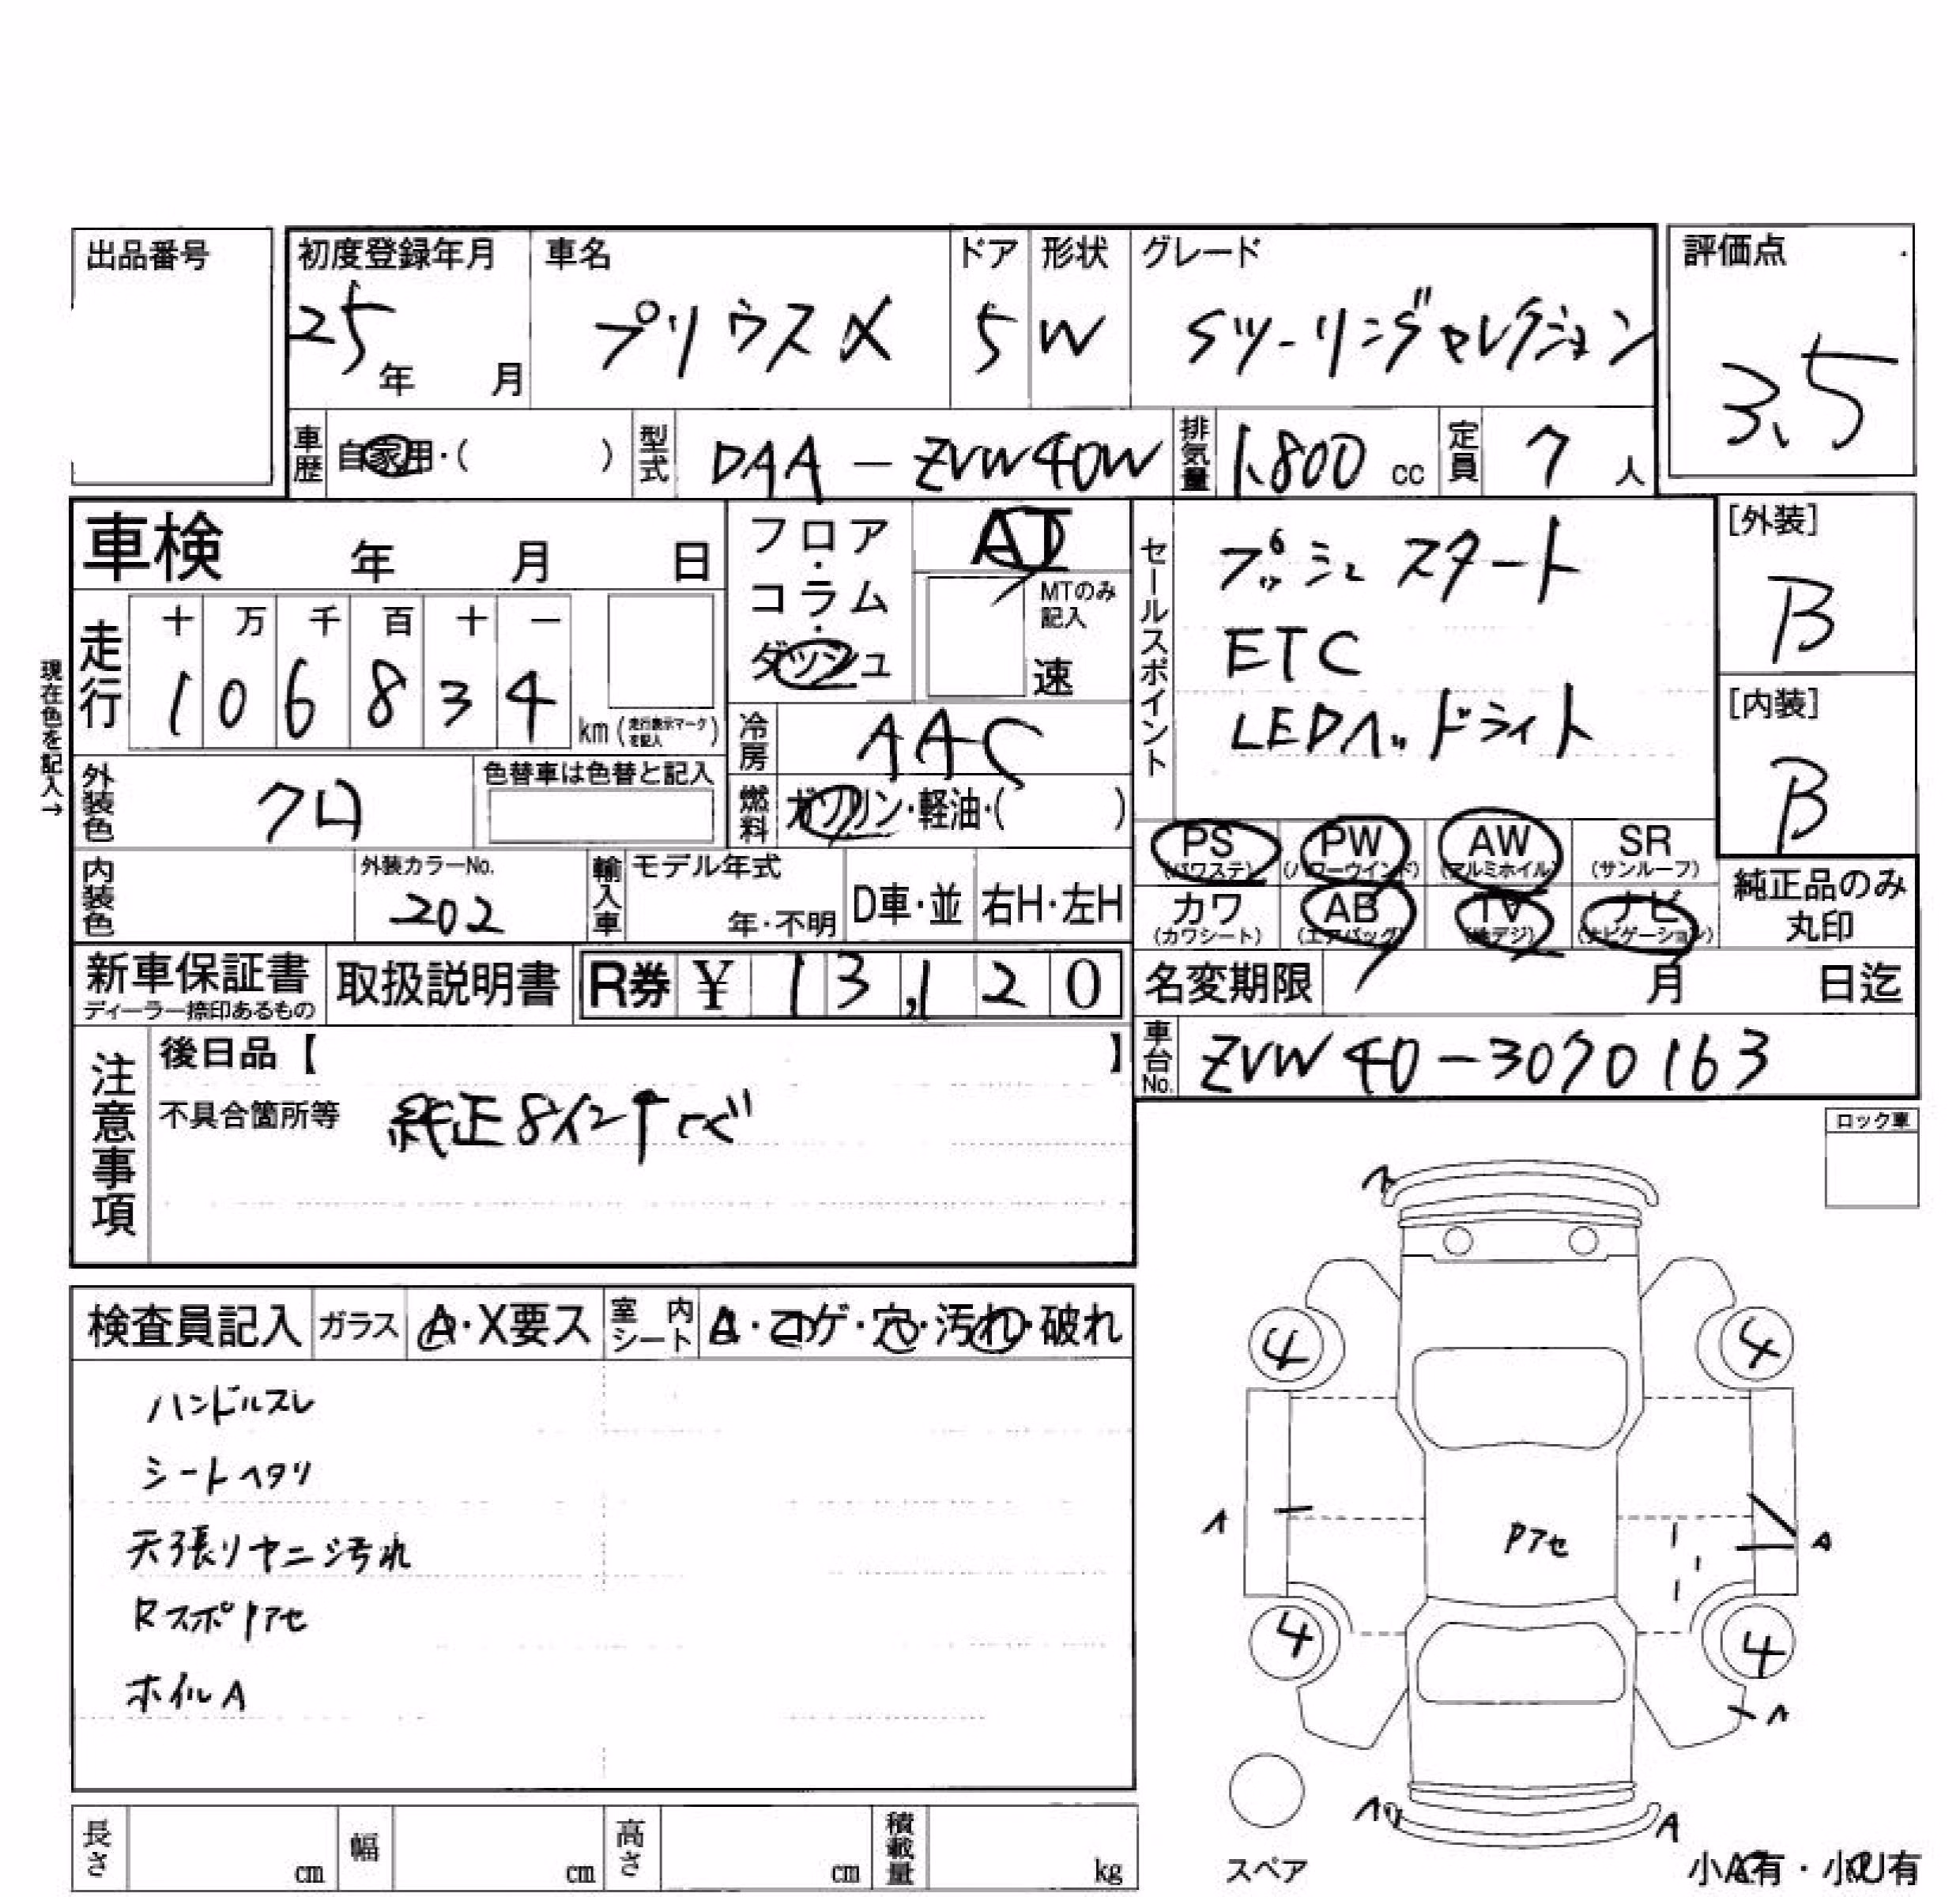 出品番号
初度登録年月 車名 ドア 形状 グレード 評価点
25年 月 プリウスα 5 W Sツーリングセレクション 3.5
車歴 自家用・( ) 型式 DAA-ZVW40W 排気量 1,800 cc 定員 7 人
車検 年 月 日
フロア・コラム・ダッシュ AT
MTのみ記入 速
セールスポイント
プッシュスタート
ETC
LEDヘッドライト
[外装] B
[内装] B
現在色を記入→
走行 十 万 千 百 十 一
1 0 6 8 3 4 km (走行表示マークを記入)
冷房 AAC
外装色 クロ 色替車は色替と記入
燃料 ガソリン・軽油・( )
PS (パワステ) PW (パワーウインド) AW (アルミホイル) SR (サンルーフ)
カワ (カワシート) AB (エアバッグ) TV (地デジ) ナビ (ナビゲーション)
純正品のみ丸印
内装色 外装カラーNo. 202 輸入車 モデル年式 年・不明 D車・並 右H・左H
新車保証書 ディーラー捺印あるもの 取扱説明書 R券 ¥ 13,120
名変期限 月 日迄
車台No. ZVW40-3070163
注意事項
後日品【 】
不具合箇所等 純正8インチナビ
ロック車
検査員記入 ガラス A・X要ス 室内シート A・コゲ・穴・汚れ・破れ
ハンドルスレ
シートヘタリ
天張リヤニ汚れ
Rスポ アセ
ホイルA
4 4
A Pアセ A
4 4
A
スペア
小A有・小U有
長さ cm 幅 cm 高さ cm 積載量 kg